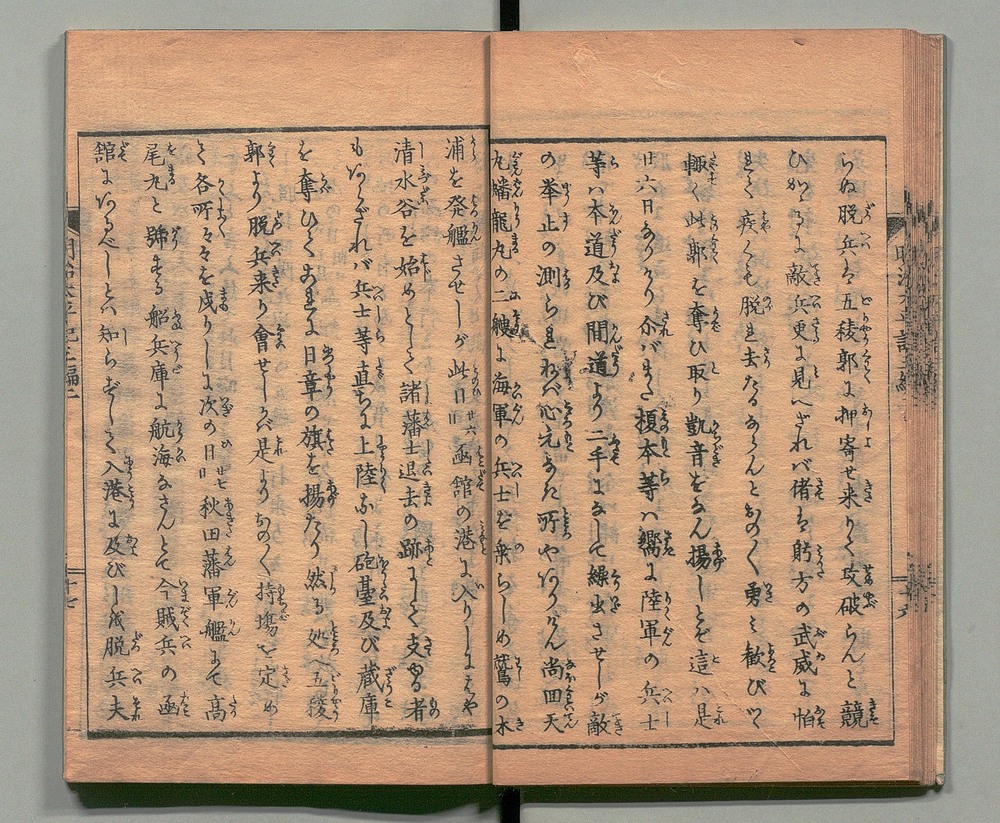 らぬ脱兵は五稜郭に押寄せ来りて攻破らんと競
ひかゝるに敵兵更に見へざれバ偖は躬方の武威に怕
れて疾くも脱れ去たるならんとおの〳〵勇ミ歓びツヽ
輙く此郭を奪ひ取り凱音をなん揚しとぞ這ハ是
廿六日なりけり尓バまた榎本等ハ嚮に陸軍の兵士
等ハ本道及び間道より二手になして繰出させしが敵
の挙止の測られねバ心元なき所やありけん尚回天
丸蟠龍丸の二艘に海軍の兵士を乗らしめ鷲の木
浦を発艦させしが此日廿六日函館の港に入りしにはや
清水谷を始めとして諸藩士退去の跡にして支ゆる者
もあらざれバ兵士等直ちに上陸なし砲臺及び蔵庫
を奪ひてこれに日章の旗を揚たり然る処へ五稜
郭より脱兵来り會せしかバ是よりおの〳〵持場を定め
て各所々々を戍りしに次の日廿七日秋田藩軍艦にて高
尾丸と號する船兵庫に航海なさんとて今賊兵の函
館にあるべしとハ知らずして入港に及びしを脱兵夫
明治太平記三編二
十七